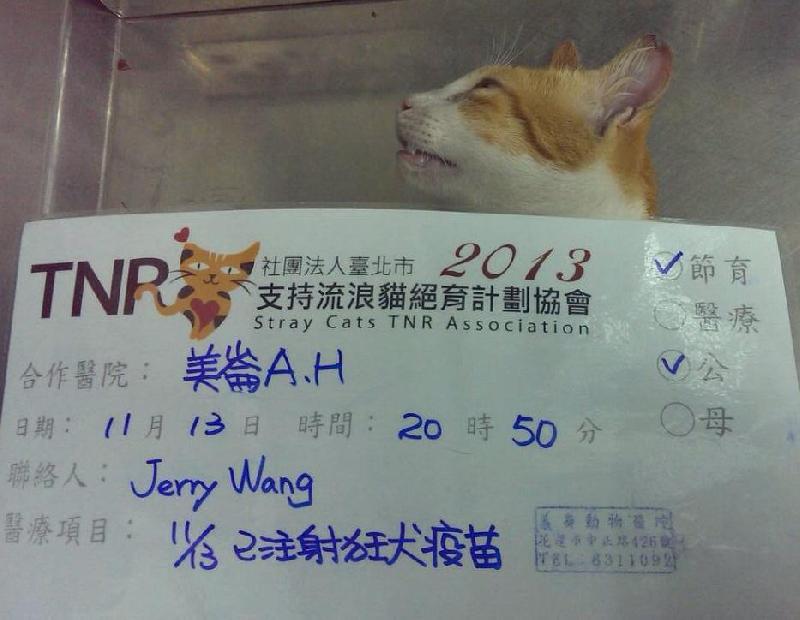 TNR
社團法人臺北市
2013
支持流浪貓絕育計劃協會
Stray Cats TNR Association
節育
醫療
公
母
合作醫院： 美崙A.H
日期： 11 月 13 日 時間： 20 時 50 分
聯絡人： Jerry Wang
醫療項目： 11/13 已注射狂犬疫苗
動物醫院
花蓮市中正路426號
TEL: 8311092